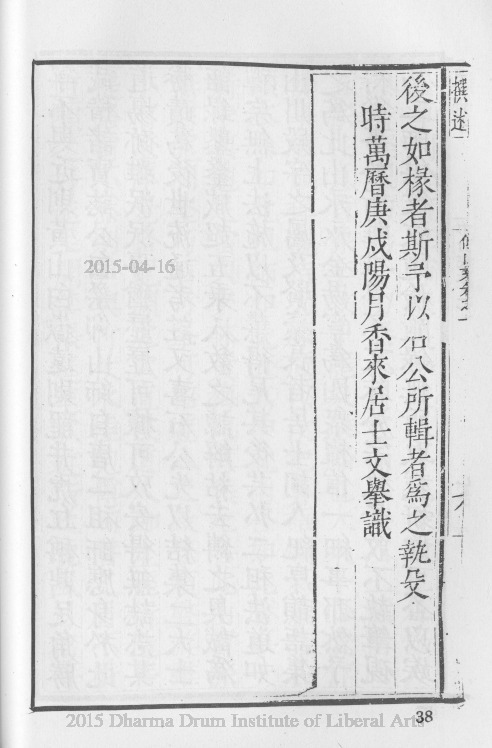 撰述
後之如椽者斯予以石公所輯者為之執殳
時萬曆庚戍陽月香來居士文舉識
2015-04-16
38
2015 Dharma Drum Institute of Liberal Arts